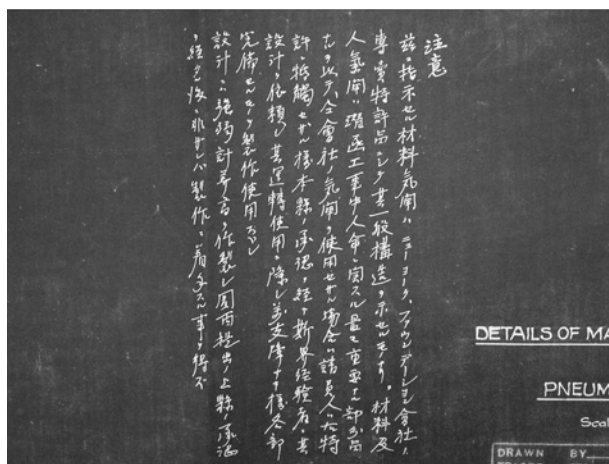 注意
茲ニ指示セル材料気閘ハニューヨーク、ファウンデーション会社ノ
専売特許品ニシテ其一般構造ヲ示セルモノナリ。材料及
人気閘ハ潜函工事中人命ニ関スル最モ重要ナル部分品
ナルヲ以テ、仝会社ノ気閘ヲ使用セザル場合ハ請負人ハ右特
許ニ抵触セザル様本縣ノ承認ヲ経テ斯界経験者ニ其
設計ヲ依頼シ其運轉使用ニ際シ万支障ナキ様各部
完備セルモノヲ製作使用スベシ
設計ハ強弱計算書ヲ作製シ図面提出ノ上縣ノ承認
ヲ経タル後ニ非サレバ製作ニ着手スル事ヲ得ズ
DETAILS OF MA
PNEUM
Scal
DRAWN BY